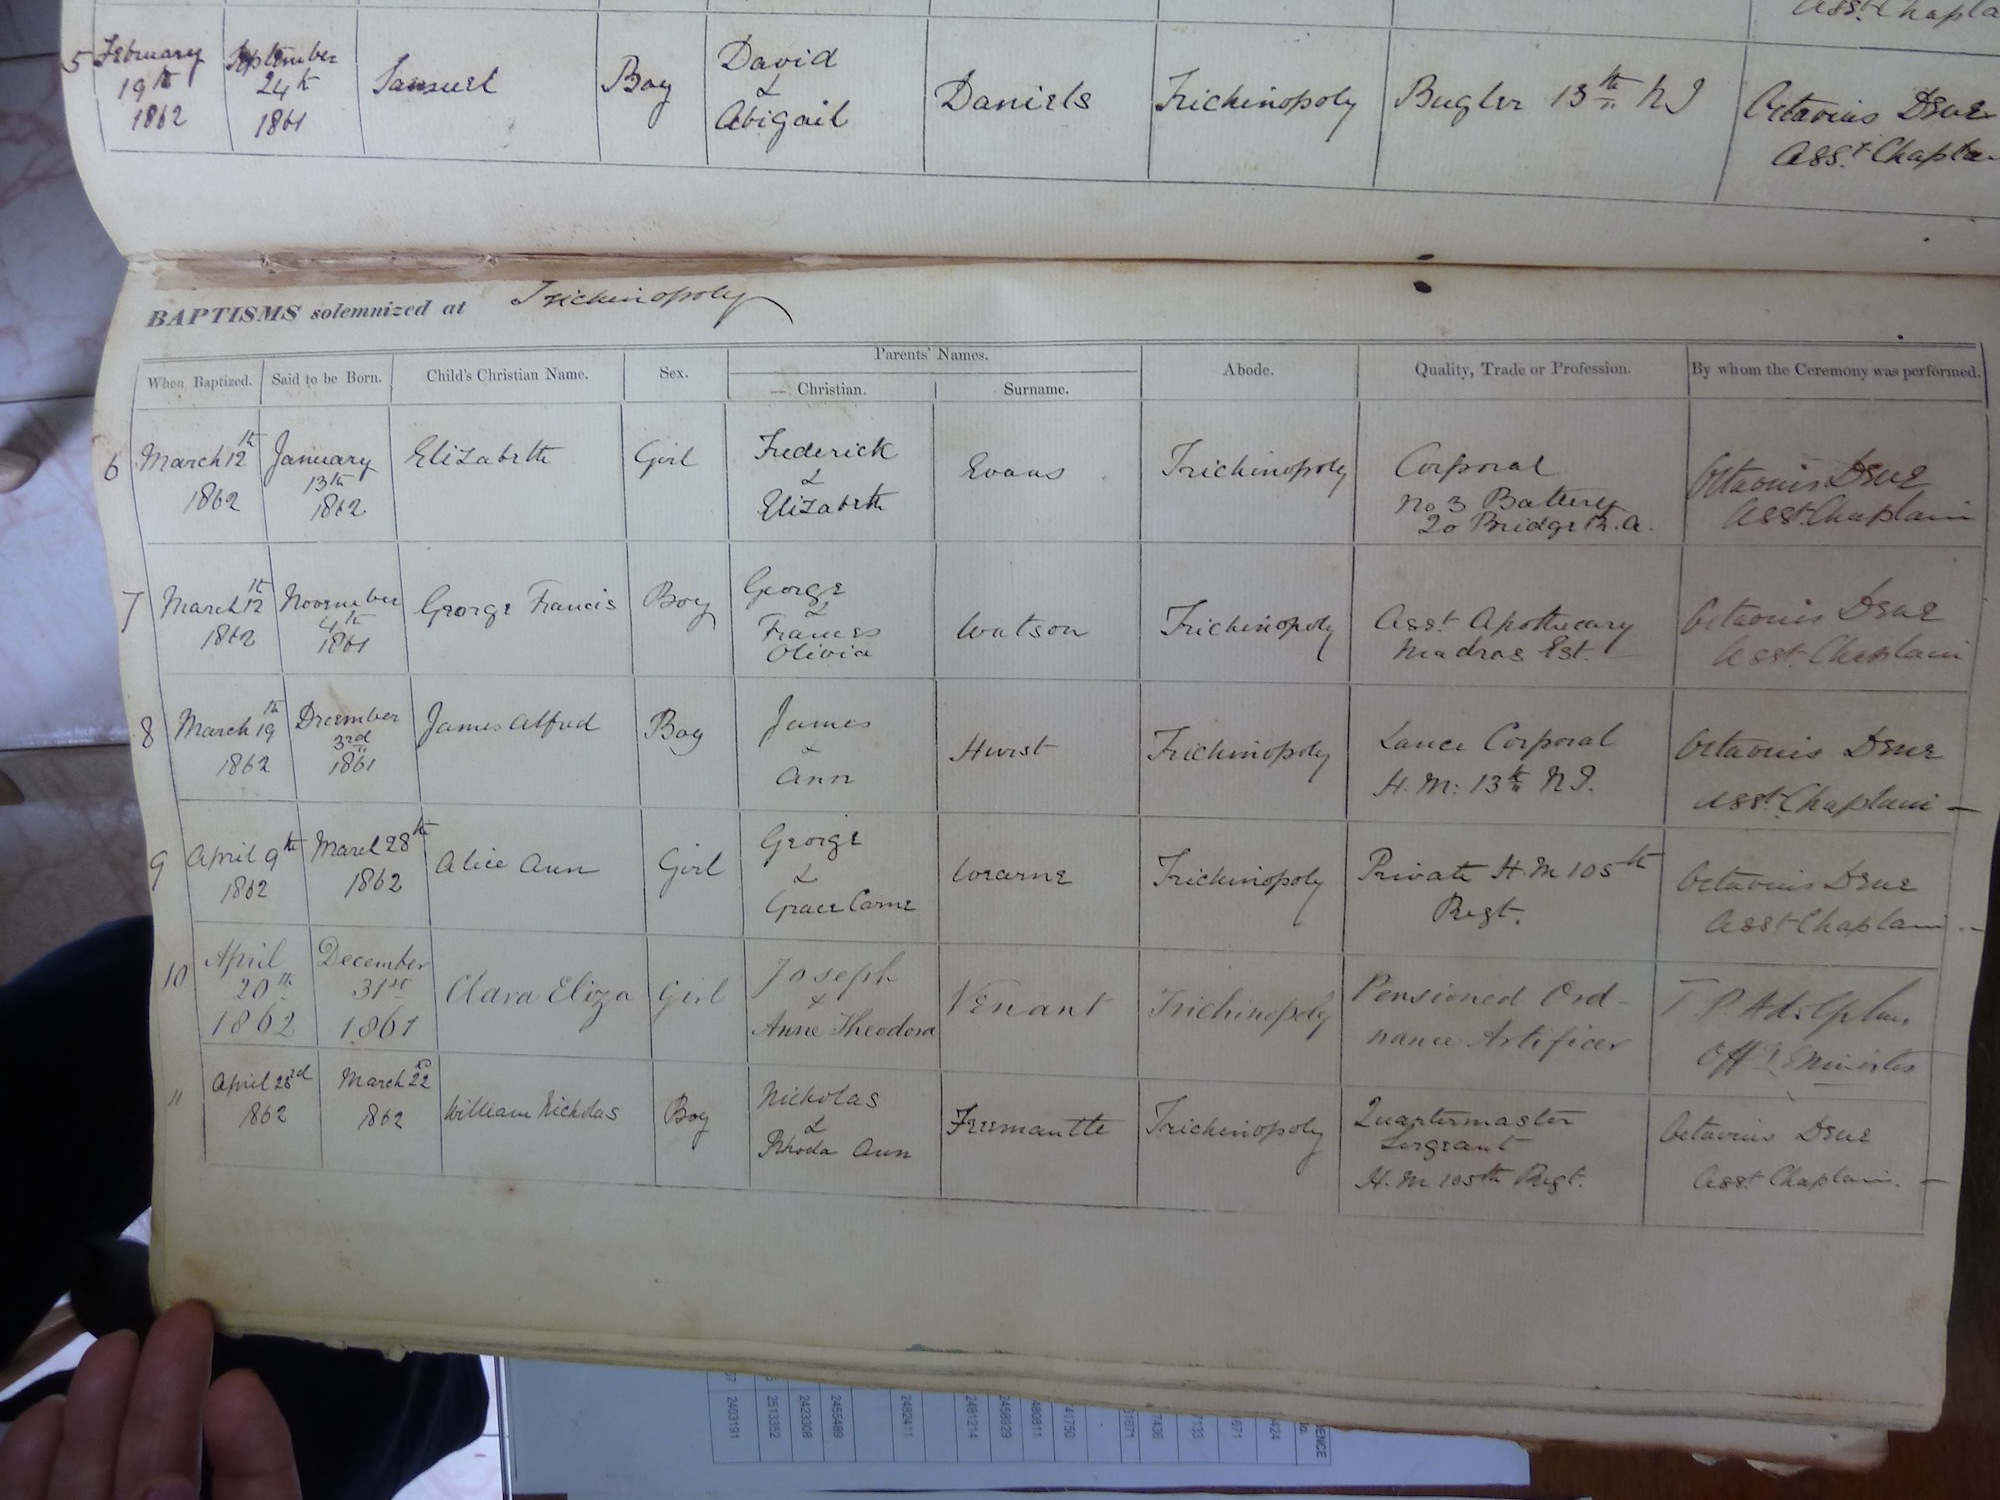 Asst. Chapla
5 February 19th 1862 September 24th 1861 Samuel Boy David & Abigail Daniels Trichinopoly Bugler 13th N I Octavius Dene Asst. Chaplai
BAPTISMS solemnized at Trichinopoly
When Baptized. Said to be Born. Child's Christian Name. Sex. Parents' Names. Christian. Surname. Abode. Quality, Trade or Profession. By whom the Ceremony was performed.
6 March 12th 1862 January 13th 1862 Elizabeth Girl Frederick & Elizabeth Evans Trichinopoly Corporal No 3 Battery 20 Bridge R.A. Octavius Dene Asst. Chaplain
7 March 12th 1862 November 4th 1861 George Francis Boy George & Frances Olivia Watson Trichinopoly Asst. Apothecary Madras Est. Octavius Dene Asst. Chaplain
8 March 19th 1862 December 3rd 1861 James Alfred Boy James & Ann Hurst Trichinopoly Lance Corporal H. M: 13th N I. Octavius Dene Asst. Chaplain
9 April 9th 1862 March 28th 1862 Alice Ann Girl George & Grace Carne Wearne Trichinopoly Private H. M 105th Regt. Octavius Dene Asst. Chaplain
10 April 20th 1862 December 31st 1861 Clara Eliza Girl Joseph & Anne Theodora Venant Trichinopoly Pensioned Ordnance Artificer T P. Adolphus Offg. Minister
11 April 23rd 1862 March 22 1862 William Nicholas Boy Nicholas & Rhoda Ann Freemantle Trichinopoly Quartermaster Sergeant H. M 105th Regt. Octavius Dene Asst. Chaplain.
2403191
2513352
2423308
2455489
2482411
2481214
2458929
480811
41750
51671
7436
7133
1671
424
ENCE